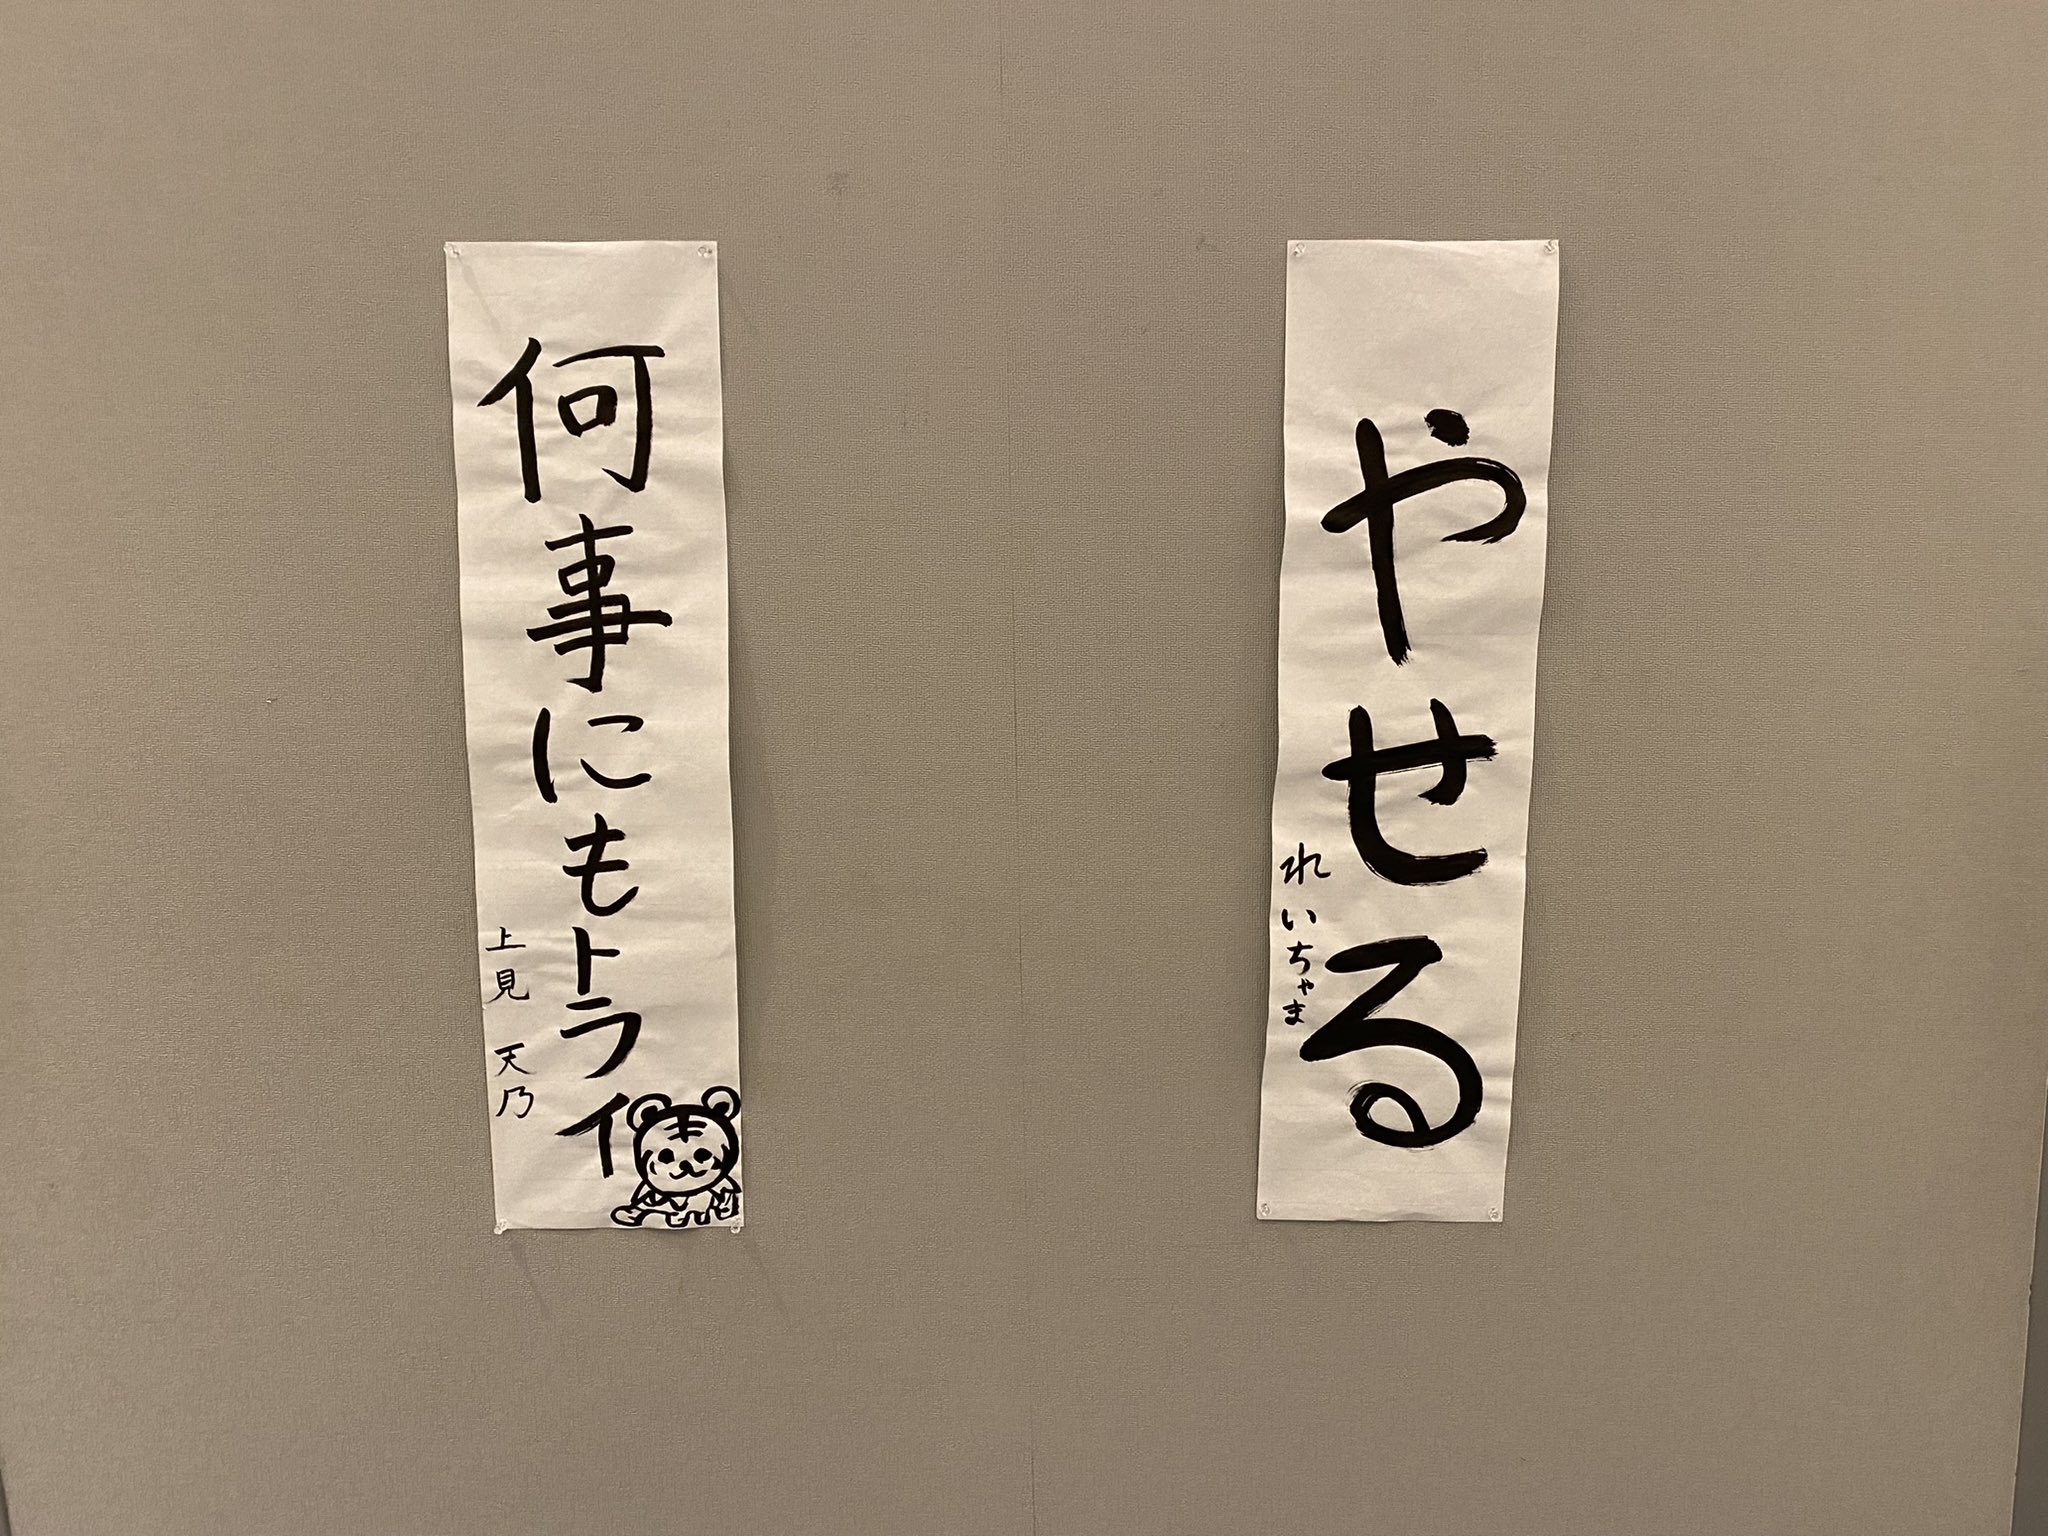 やせる
れいちゃま
何事にもトライ
上見 天乃